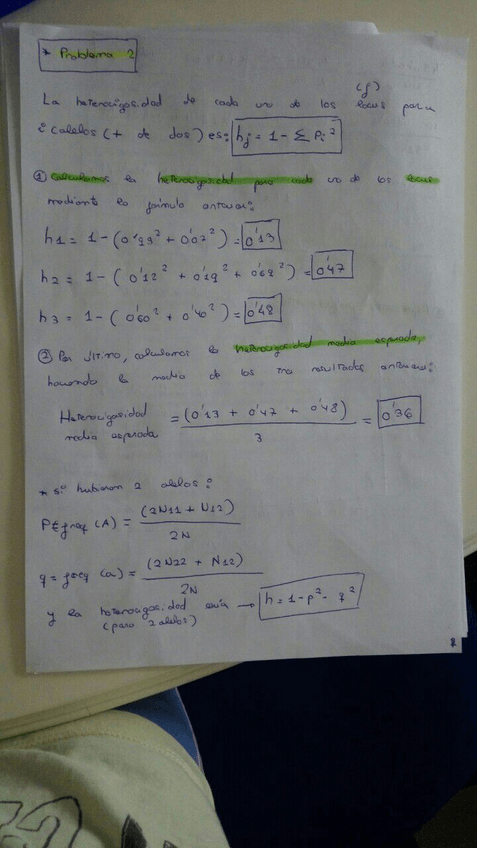 * Problema 2
(j)
La heterocigosidad de cada uno de los locus para
i alelos (+ de dos) es: hj = 1 - Σ Pi²
① Calculamos la heterocigosidad para cada uno de los locus
mediante la fórmula anterior:
h1 = 1 - (0'93² + 0'07²) = 0'13
h2 = 1 - ( 0'12² + 0'19² + 0'69² ) = 0'47
h3 = 1 - ( 0'60² + 0'40² ) = 0'48
② Por último, calculamos la heterocigosidad media esperada,
haciendo la media de los tres resultados anteriores:
Heterocigosidad
media esperada = (0'13 + 0'47 + 0'48) / 3 = 0'36
* si hubieran 2 alelos:
freq (A) = (2N11 + N12) / 2N
q = freq (a) = (2N22 + N12) / 2N
y la heterocigosidad sería → h = 1 - p² - q²
(para 2 alelos)